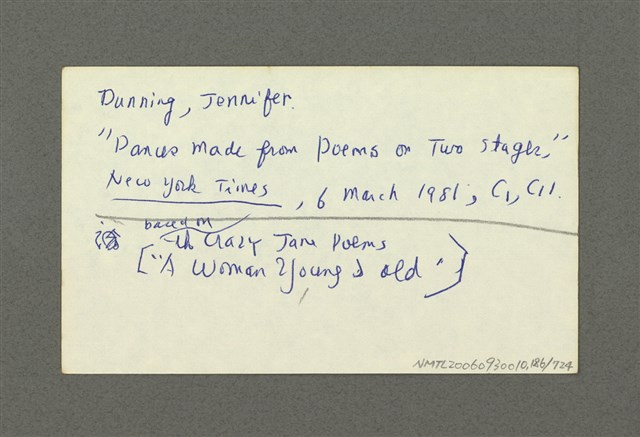 Dunning, Jennifer.
"Dances made from Poems on Two stages,"
New York Times, 6 March 1981, C1, C11.
based on
the Crazy Jane Poems
["A Woman Young & old"]
NMTL20060930010.186/724